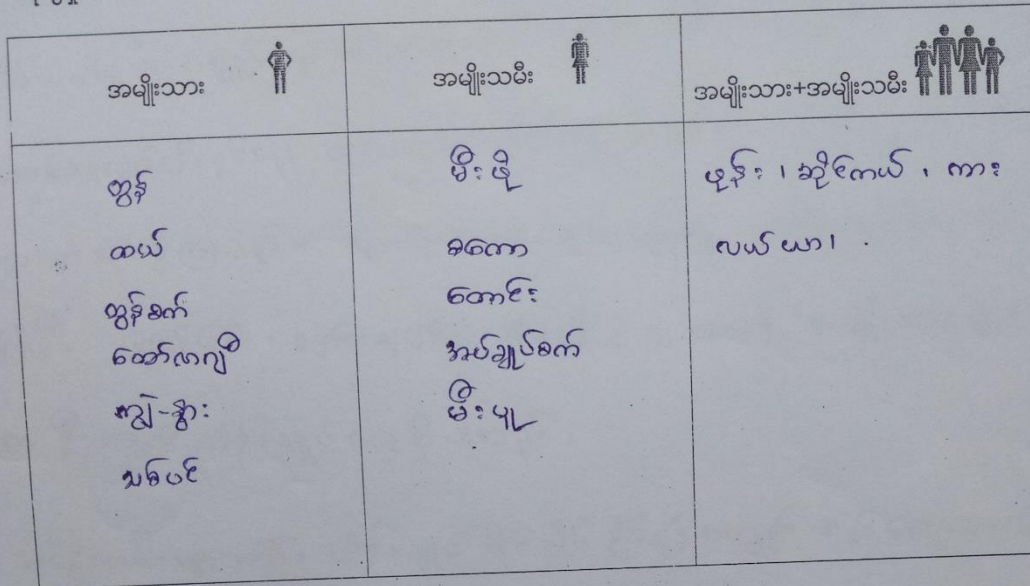 အမျိုးသား
အမျိုးသမီး
အမျိုးသား+အမျိုးသမီး
ထွန်
ထယ်
ထွန်စက်
ထော်လာဂျီ
ကျွဲ-နွား
သစ်ပင်
မီးဖို
စကော
တောင်း
အပ်ချုပ်စက်
မီးပူ
ဖုန်း ၊ ဆိုင်ကယ် ၊ ကား
လယ်ယာ၊